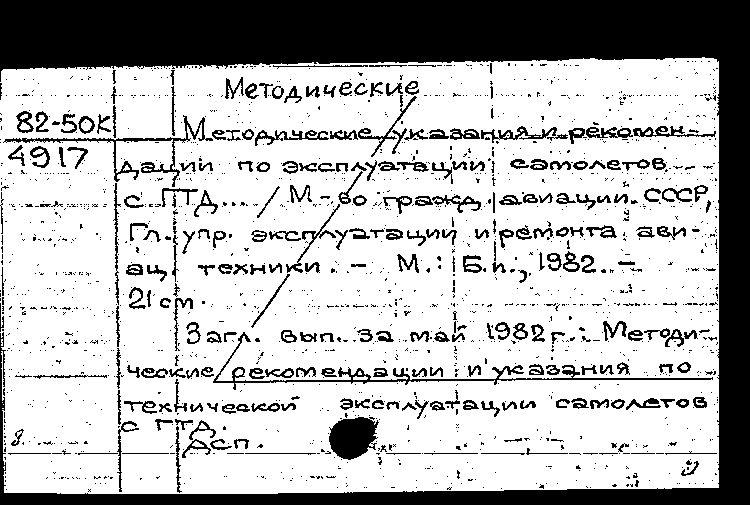 Методические
82-50К
4917
Методические указания и рекомен-
дации по эксплуатации самолетов
с ГТД... / М-во гражд. авиации СССР,
Гл. упр. эксплуатации и ремонта ави-
ац. техники. - М.: Б.и., 1982. -
21 см.
Загл. вып. за май 1982 г.: Методи-
ческие рекомендации и указания по
технической эксплуатации самолетов
с ГТД.
ДСП.